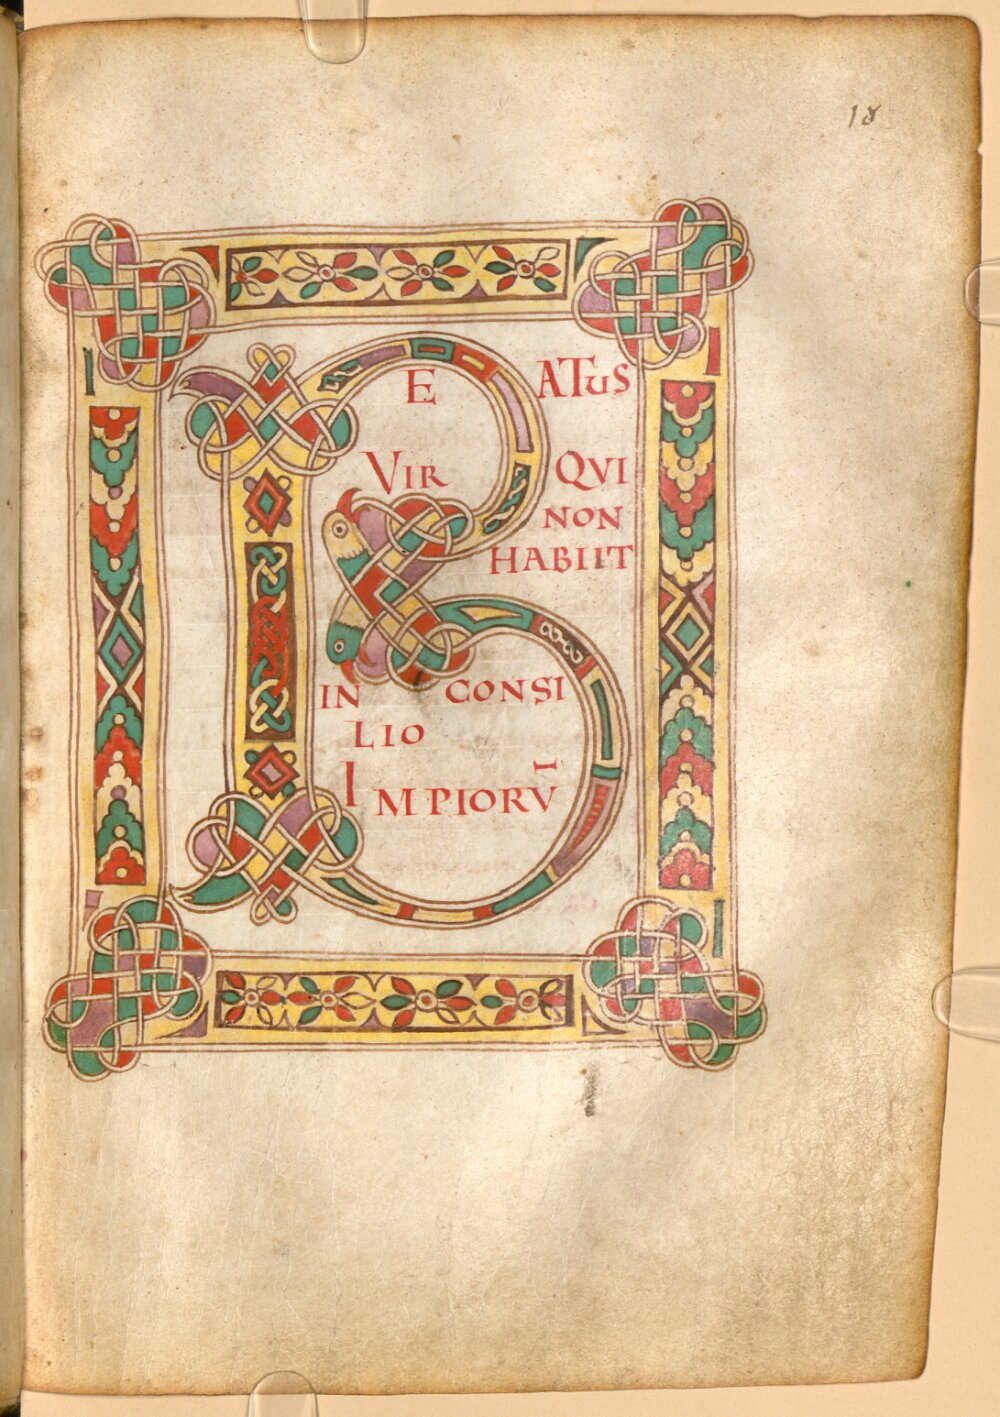 18
BEATUS
VIR QVI
NON
HABIIT
IN CONSI
LIO
IMPIORV̄